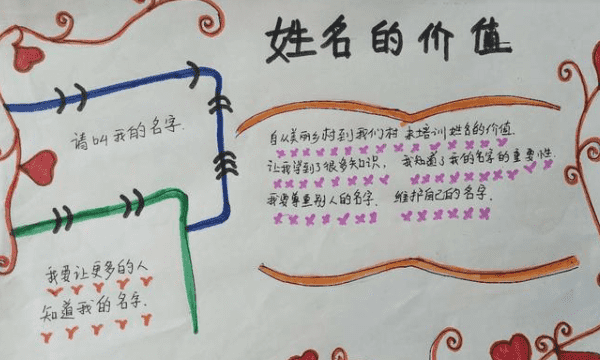 姓名的价值
请叫我的名字.
自从美丽乡村到我们村来培训姓名的价值.
让我学到了很多知识, 我知道了我的名字的重要性.
我要尊重别人的名字. 维护自己的名字.
我要让更多的人
知道我的名字.